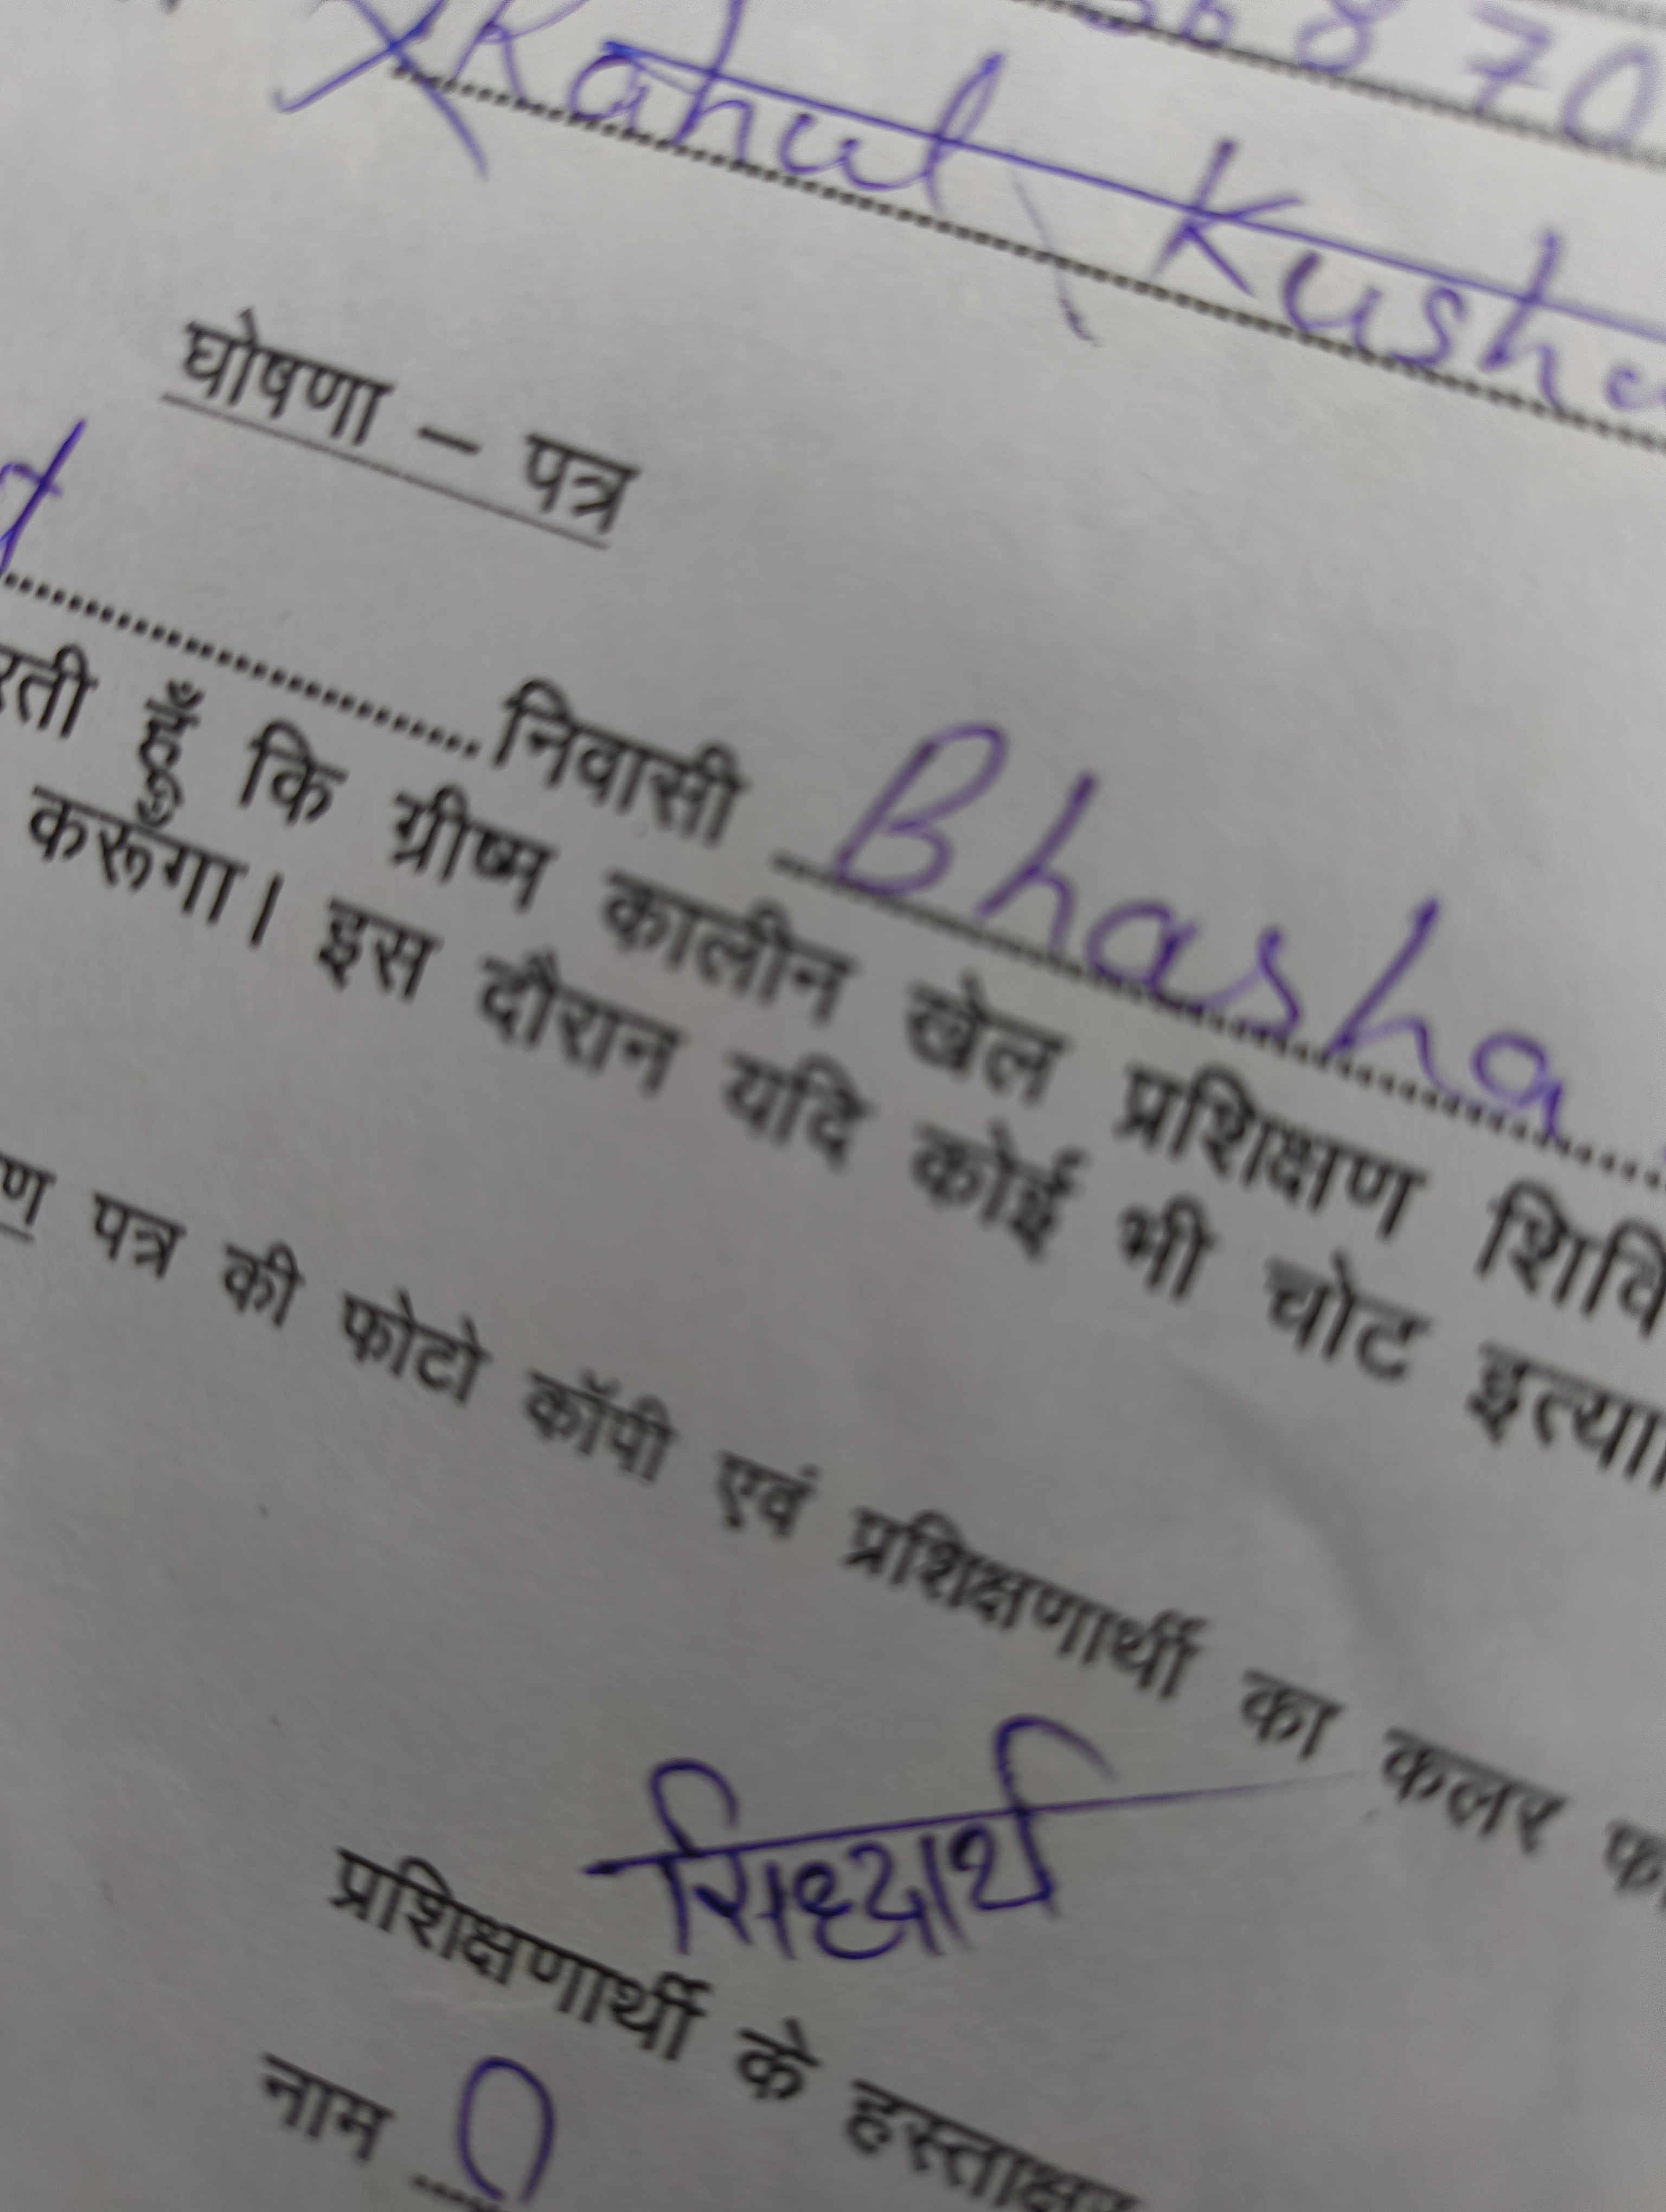 6870
Rahul Kusha
घोषणा – पत्र
निवासी Bhasha
हूँ कि ग्रीष्म कालीन खेल प्रशिक्षण शिवि
करूँगा। इस दौरान यदि कोई भी चोट इत्या
पत्र की फोटो कॉपी एवं प्रशिक्षणार्थी का कलर फो
सिध्दार्थ
प्रशिक्षणार्थी के हस्ताक्षर
नाम